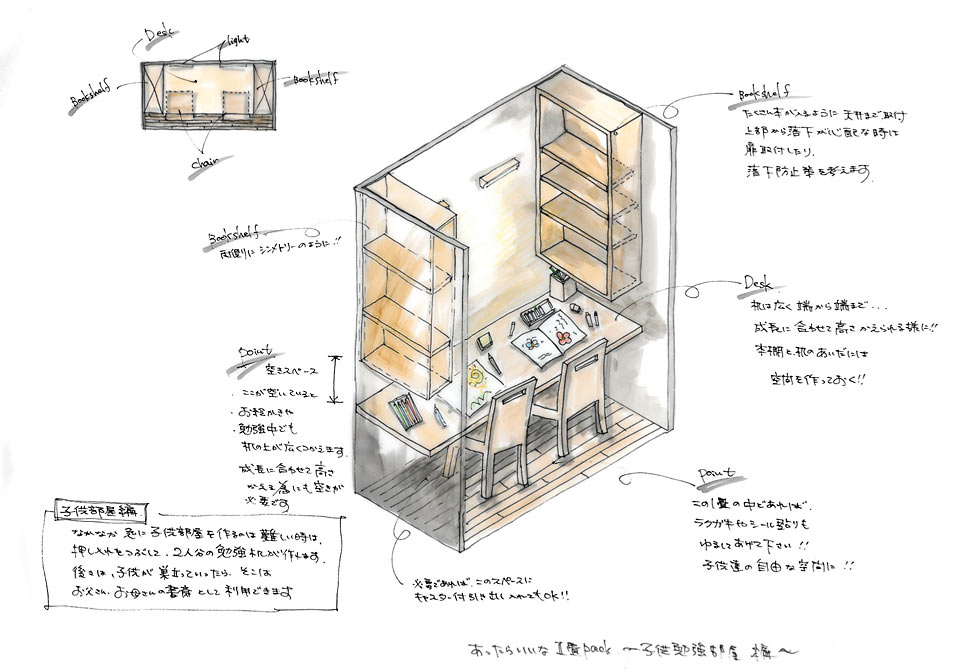 Desk
light
Bookshelf
Bookshelf
chair
Bookshelf
たくさん本が入るように 天井まで取付
上部から落下が心配な時は
扉取付したり、
落下防止策を考えます。
Bookshelf
両側に シンメトリーのように!!
Desk
机は広く 端から端まで...
成長に合わせて高さ かえられる様に!!
本棚と机のあいだには
空間を作っておく!!
point
空きスペース
・ここが空いていると
・お絵かきや
・勉強中でも
机の上が広くつかえます。
成長に合わせて 高さ
かえる為にも空きが
必要です
point
この1畳の中であれば、
ラクガキやシール貼りも
ゆるしてあげて下さい!!
子供達の自由な空間に!!
子供部屋編
なかなか 急に子供部屋を作るのは 難しい時は、
押し入れをつぶして、2人分の勉強机が作れます。
後々は、子供が巣立っていったら、そこは
お父さん、お母さんの書斎として利用できます
必要であれば、このスペースに
キャスター付引き出し入れてもOK!!
あったらいいな 1畳pack 〜子供勉強部屋 編〜